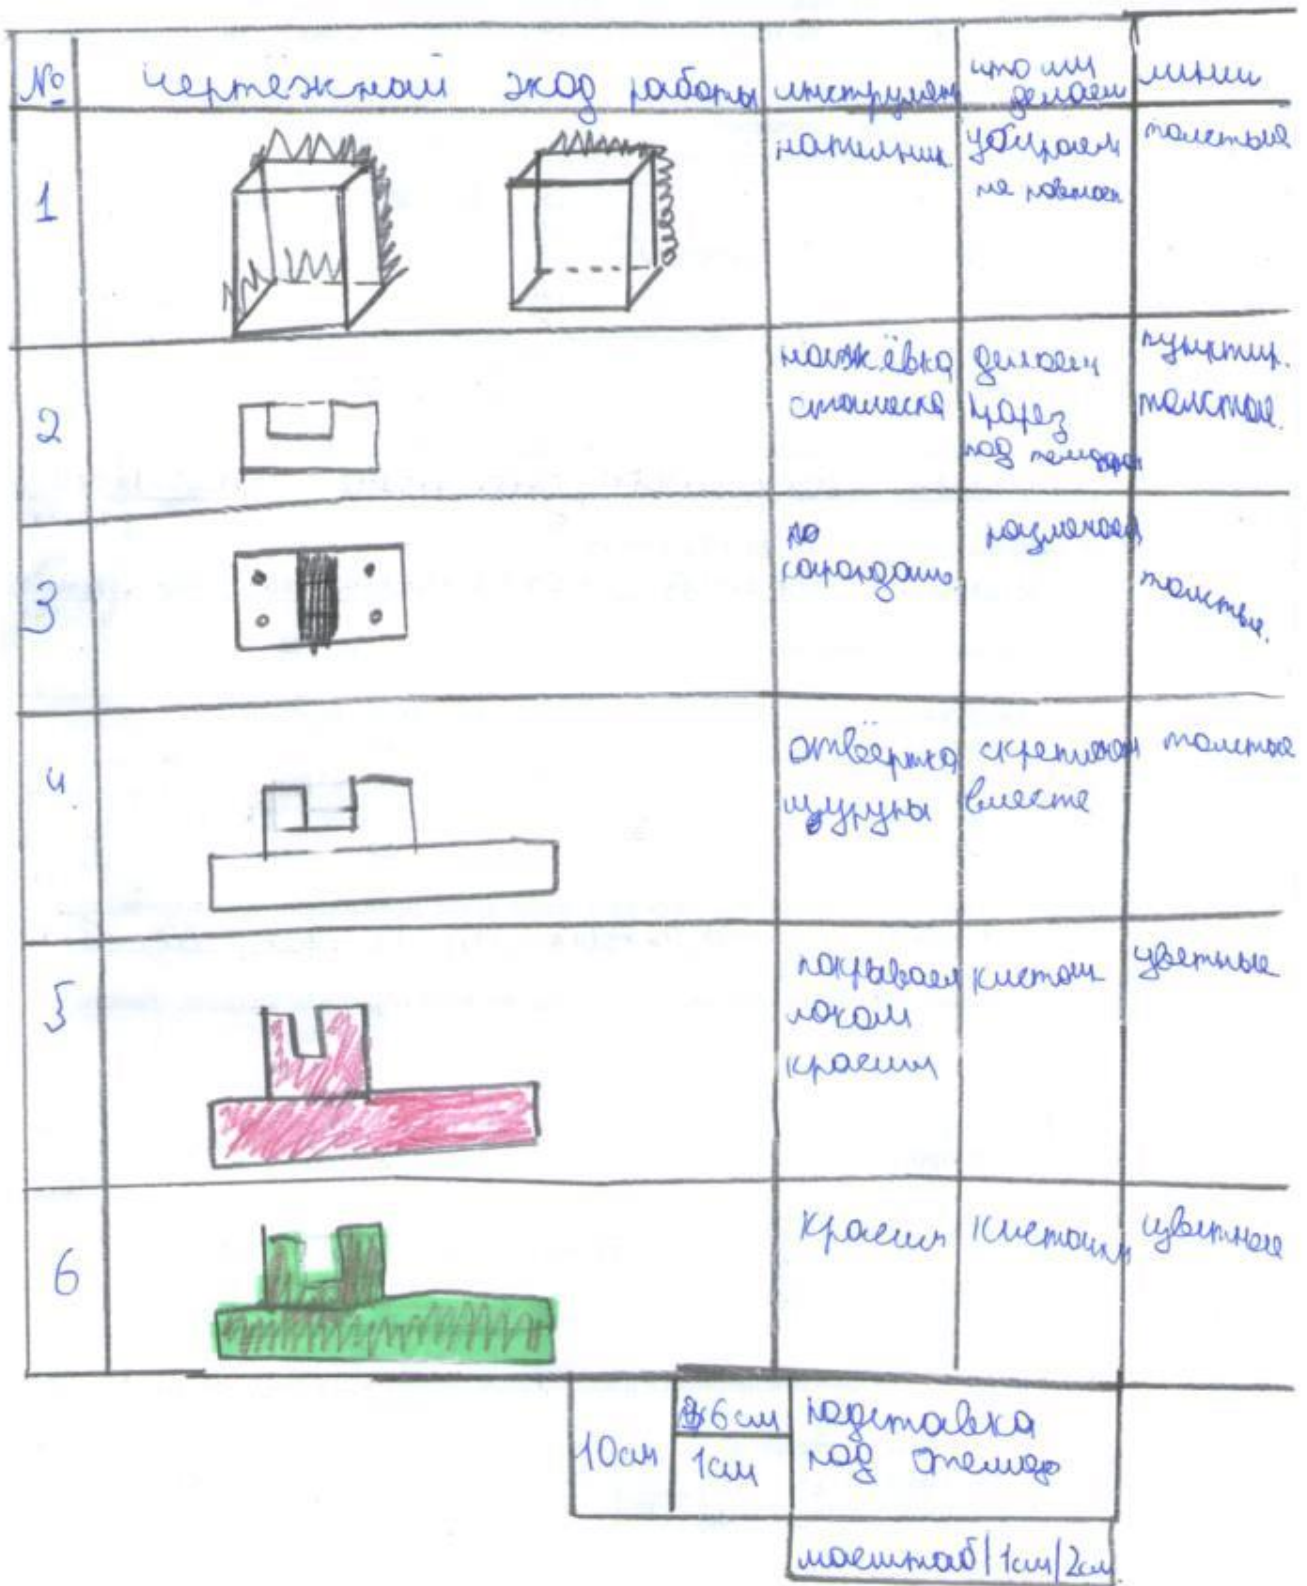 № чертёжный эход работы инструмен что мы делаем линии
1 напильник убираем не ровном толстые
2 ножёвка стамеска делаем нарез под пунктир. толстая.
3 карандаш размечаем толстые.
4 отвёртка шурупы скрепляем вместе толстые
5 покрываем лаком красим кистош цветные
6 красим кисточки цветное
10см 6см
1см
подставка
под
масштаб | 1см | 2см